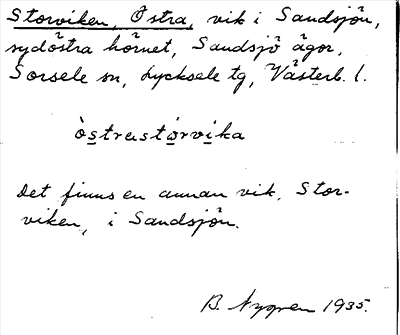 Storviken, Östra, vik i Sandsjön,
sydöstra hörnet, Sandsjö ägor,
Sorsele sn, Lycksele tg, Västerb. l.
òstrastórvika
Det finns en annan vik, Stor-
viken, i Sandsjön.
B. Nygren 1935.